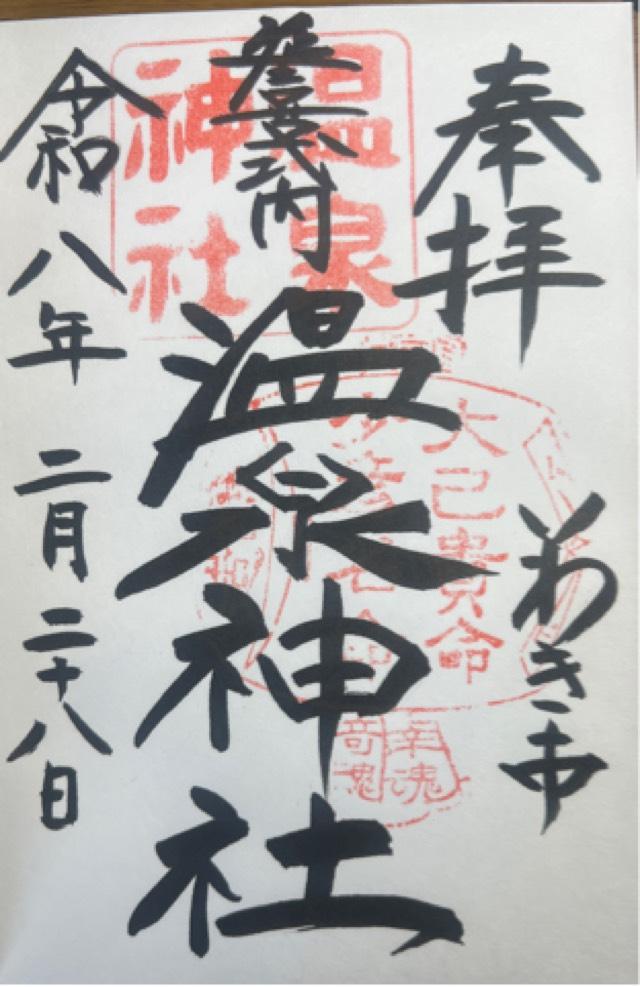 奉拝
いわき市
延喜式内
温泉神社
令和八年 二月 二十八日
温泉
神社
大己貴命
少彦名命
幸魂
奇魂